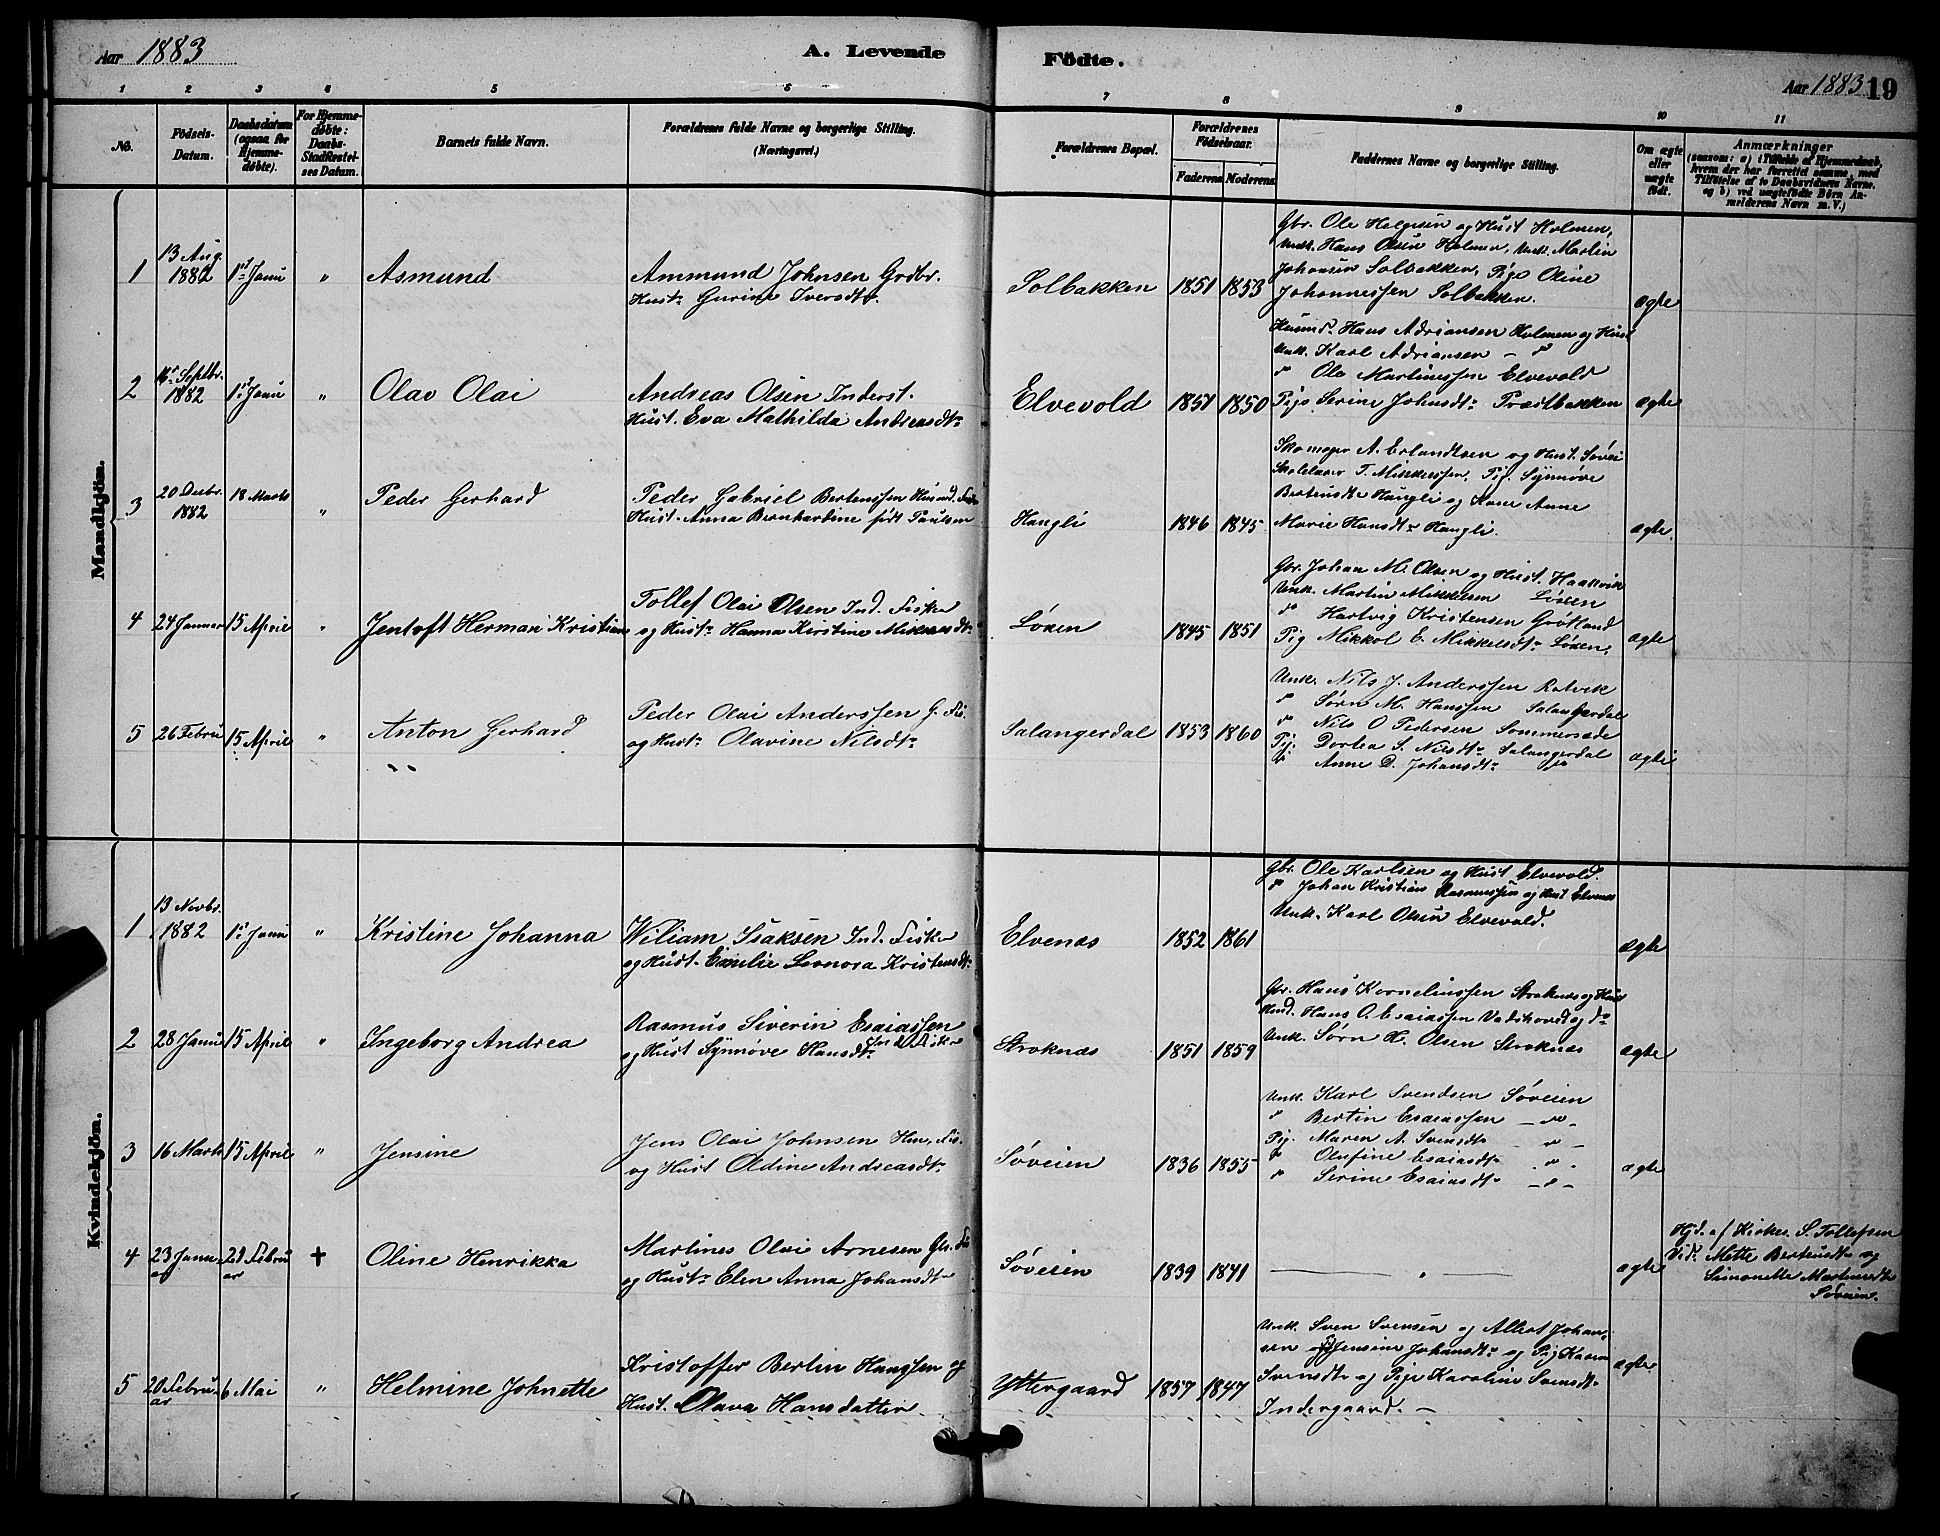 Aar 1883
A. Levende
Födte.
Aar 1883 19
1 2 3 4 5 6 7 8 9 10 11
No.
Födsels-Datum.
Daabsdatum (ogsaa for Hjemmedøbte).
For Hjemmedøbte: Daabs-Stadfæstelses Datum.
Barnets fulde Navn.
Forældrenes fulde Navne og borgerlige Stilling. (Næringsvei.)
Forældrenes Bopæl.
Forældrenes Födselsaar.
Faderens Moderens
Faddernes Navne og borgerlige Stilling.
Om ægte eller uægte födt.
Anmærkninger
(saasom: a) i Tilfælde af Hjemmedaab, hvem der har forrettet samme, med Tilföielse af to Daabsvidners Navne, og b) ved uægtefödte Börn Anmelderens Navn m. V.)
Mandkjön.
1 13 Aug. 1882 1ste Janu " Asmund
Ammund Johnsen Grdbr.
Hust. Gurine Iversdt.
Solbakken 1851 1853
Gbr. Ole Helgesen og Hust Holmen,
Unk. Hans Olsen Holmen, Unk. Martin
Johansen Solbakken, Pige Oline
Johannessen Solbakken.
ægte
2 Septbr. 1882 1ste Janu " Olav Olai
Andreas Olsen Inderst.
Hust. Eva Mathilda Andreasdtr
Elvevold 1851 1850
Husmd. Hans Adriansen Holmen og Hust
Unk. Karl Adriansen - "
" Ole Martinussen Elvevold
Pige Serine Johnsdt. Præstbakken
ægte
3 20 Decbr. 1882 18 Marts " Peder Gerhard
Peder Gabriel Bertenssen Husmd. Fisker
Hust. Anna Bernhardine født Paulsen
Hangli 1846 1845
Skomager A. Erlandtsen og Hust. Søvei
Skolelærer T. Mikkelssen, Pig. Synnøve
Berteusdtr Hangli og Kone Anne
Marie Hansdtr Hangli.
ægte.
4 24 Januar 15 April " Jentoft Herman Kristian
Tollef Olai Olsen Ind. Fisker
og Hustr. Hanna Kirstine Mikkelsdt.
Løxen 1845 1851
Gbr. Johan M. Olsen og Hust. Haakvik
Unk. Martin Mikkelsen Løxen
" Hartvig Kristensen Grötland
Pig Mikkol E. Mikkelsdt. Løxen.
ægte
5 26 Febru 15 April " Anton Gerhard
Peder Olai Anderssen G. Fis.
og Hust. Olavine Nilsdt.
Salangerdal 1853 1860
Unk. Nils J. Anderssen Rotvik
" Sørn M. Hanssen Salangerdal
" Nils O Pedersen Sommersæde
Pig. Dortea S. Nilsdt. Salangerdal
" Anne D. Johansdt.
ægte
Kvindekjön.
1 13 Novbr. 1882 1ste Janu " Kristine Johanna
Wiliam Isaksen Ind. Fisker
og Hust. Emilie Leonora Kristensdt.
Elvenæs 1852 1861
Gbr. Ole Karlsen og Hust Elvevold.
" Johan Kristian Rasmussen og Hust Elvenæs
Unk. Karl Olsen Elvevold.
ægte
2 28 Janu 15 April " Ingeborg Andrea
Rasmus Siverin Esaiassen
og Hust Synnøve Hansdt. Ind. Fisker
Stroknæs 1851 1859
Gbr. Hans Kornelinssen Stroknæs og Hust
Husd. Hans O. Esaiassen Vadshoved og do
Unk. Sørn H. Olsen Stroknæs
ægte
3 16 Marts 15 April " Jensine
Jens Olai Johnsen Hm. Fis.
og Hust Oldine Andreasdt.
Søveien 1836 1855
Unk. Karl Svendsen Søveien
" Bertin Esaiassen - " -
Pig. Maren A. Svensdt - " -
" Olufine Esaiasdt. - " -
" Serine Esaiasdt. - " -
ægte
4 23 Januar 21 Februar + Oline Henrikka
Martines Olai Arnesen Gbr. Fis
og Hustr. Elen Anna Johansdt.
Søveien 1839 1841
— " —
ægte
Hjd. af Kirkes. S. Tollefsen
Vid. Mette Berteusdt. og
Simonette Martinsdt.
Søveien.
5 20 Februar 6 Mai " Helmine Johnette
Kristoffer Bertin Hansen og
Hust. Olava Hansdatter.
Yttergaard 1857 1847
Unk. Sven Svensen og Albert Johan-
sen Jensine Johansdt. og Pig Karen
Svensdt. og Pige Karoline Svensdt.
Indergaard. -
ægte